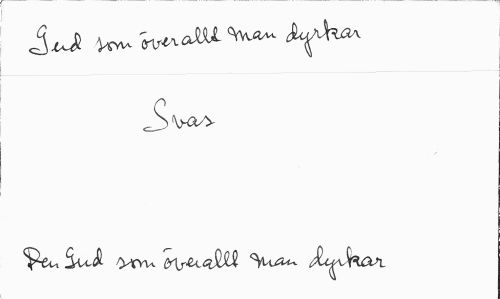 Gud som överallt man dyrkar
Svas
Den Gud som överallt man dyrkar